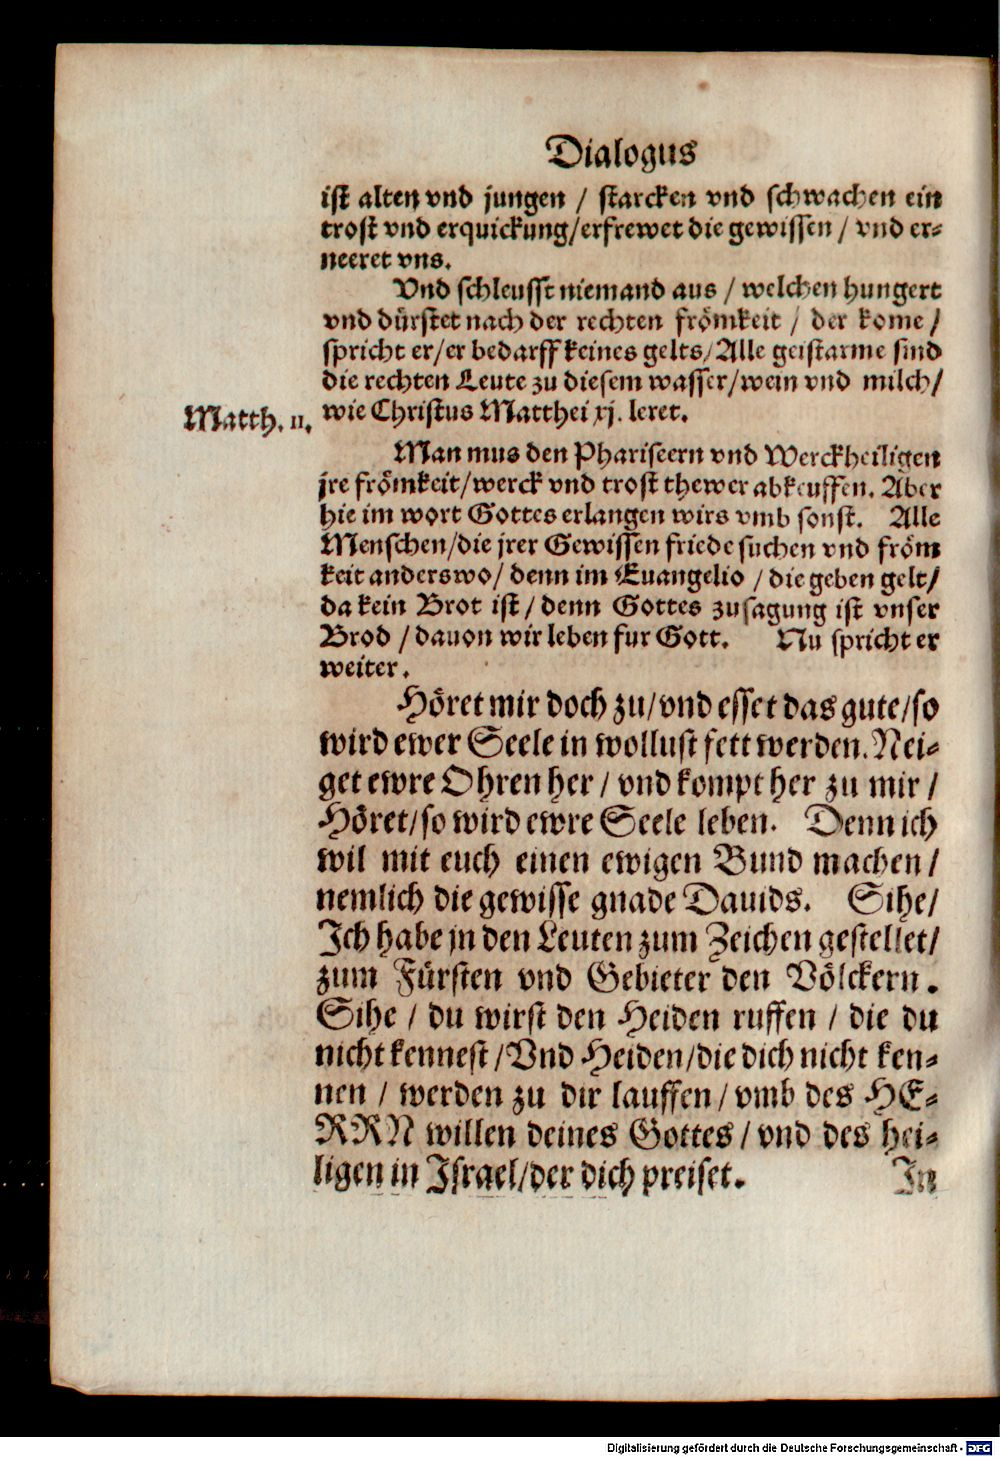 Dialogus
ist alten vnd jungen / starcken vnd schwachen ein
trost vnd erquickung/erfrewet die gewissen / vnd er-
neeret vns.
Vnd schleusst niemand aus / welchen hungert
vnd dürstet nach der rechten frömkeit / der kome /
spricht er/er bedarff keines gelts/Alle geistarme sind
die rechten Leute zu diesem wasser/wein vnd milch/
wie Christus Matthei xj. leret.
Matth. 11.
Man mus den Phariseern vnd Werckheiligen
jre frömkeit/werck vnd trost thewer abkeuffen. Aber
hie im wort Gottes erlangen wirs vmb sonst. Alle
Menschen/die jrer Gewissen friede suchen vnd fröm
keit anderswo/ denn im Euangelio / die geben gelt/
da kein Brot ist / denn Gottes zusagung ist vnser
Brod / dauon wir leben fur Gott. Nu spricht er
weiter.
Höret mir doch zu/vnd esset das gute/so
wird ewer Seele in wollust fett werden. Nei-
get ewre Ohren her / vnd kompt her zu mir /
Höret/so wird ewre Seele leben. Denn ich
wil mit euch einen ewigen Bund machen /
nemlich die gewisse gnade Dauids. Sihe/
Ich habe jn den Leuten zum Zeichen gestellet/
zum Fürsten vnd Gebieter den Völckern.
Sihe / du wirst den Heiden ruffen / die du
nicht kennest /Vnd Heiden/die dich nicht ken-
nen / werden zu dir lauffen / vmb des HE-
RRN willen deines Gottes / vnd des hei-
ligen in Israel/der dich preiset. In
Digitalisierung gefördert durch die Deutsche Forschungsgemeinschaft - DFG